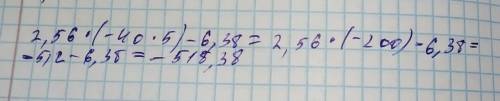 2,56·(-40·5)-6,38= 2,56·(-200)-6,38=
-512-6,38=-518,38